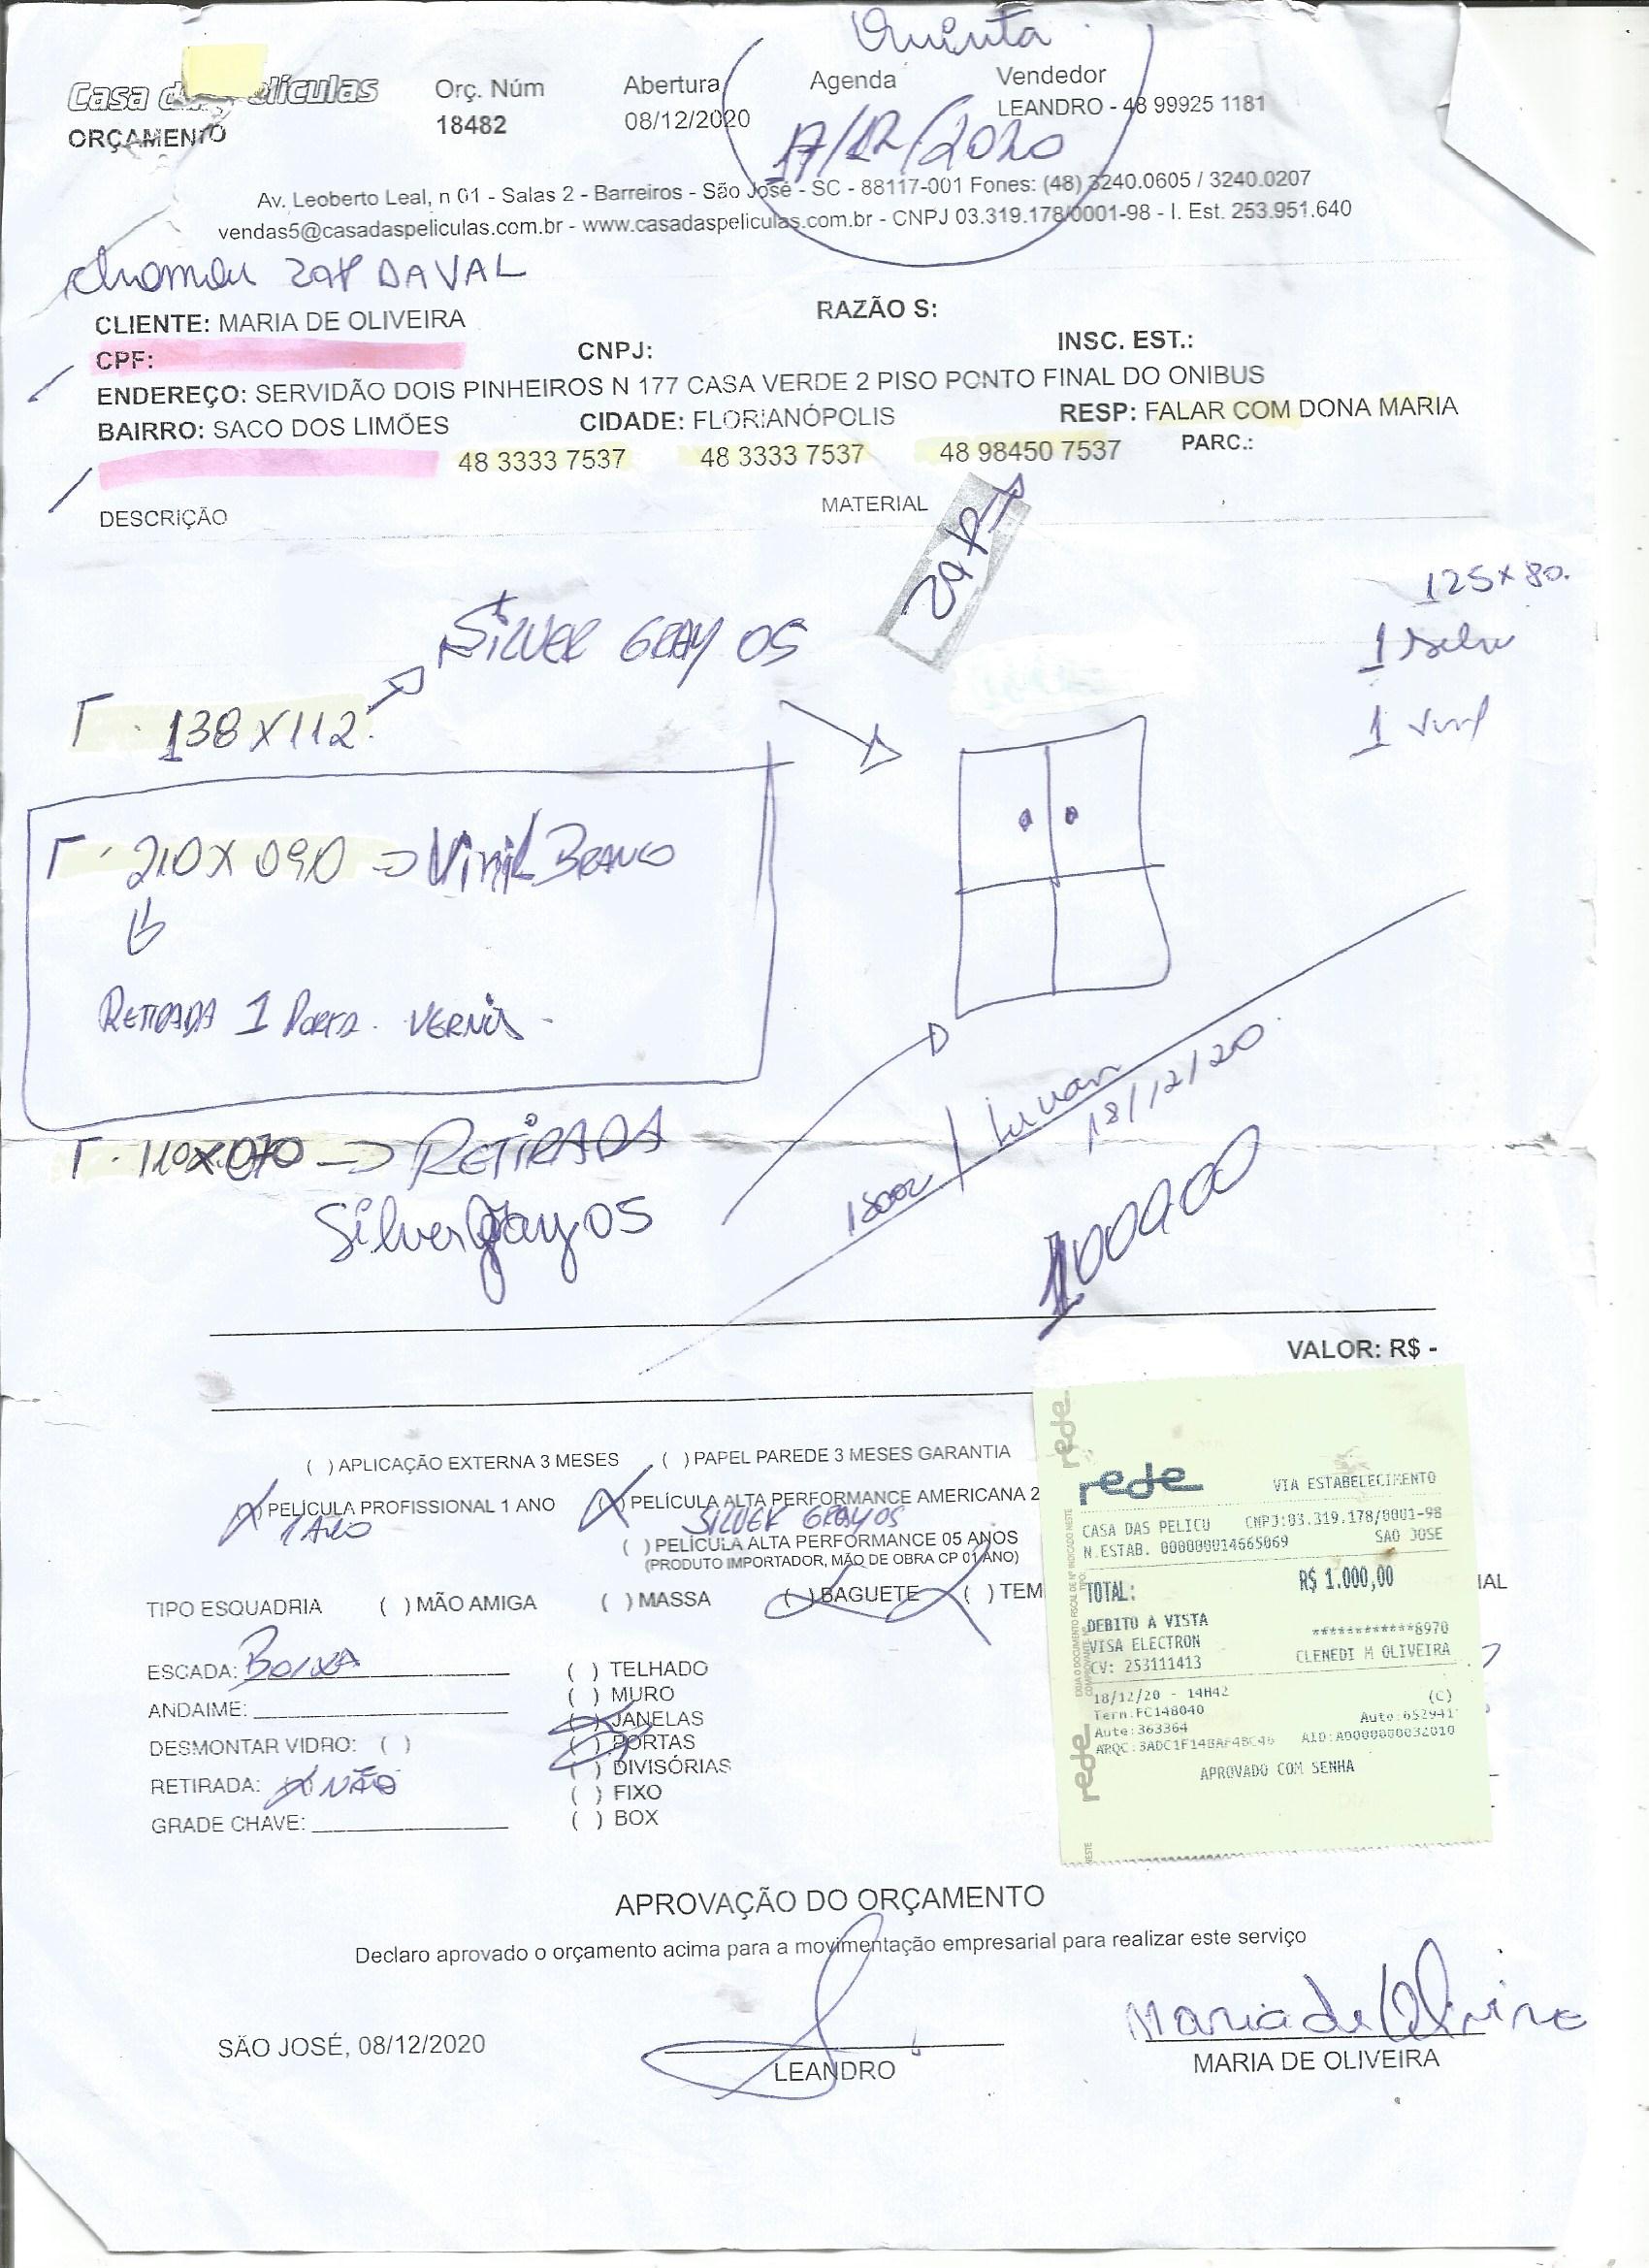 Quinta
Casa d eliculas Orç. Núm Abertura Agenda Vendedor
ORÇAMENTO 18482 08/12/2020 17/12/2020 LEANDRO - 48 99925 1181
Av. Leoberto Leal, n 01 - Salas 2 - Barreiros - São José - SC - 88117-001 Fones: (48) 3240.0605 / 3240.0207
vendas5@casadaspeliculas.com.br - www.casadaspeliculas.com.br - CNPJ 03.319.178/0001-98 - I. Est. 253.951.640
DAVAL
CLIENTE: MARIA DE OLIVEIRA RAZÃO S:
CPF: CNPJ: INSC. EST.:
ENDEREÇO: SERVIDÃO DOIS PINHEIROS N 177 CASA VERDE 2 PISO PONTO FINAL DO ONIBUS
BAIRRO: SACO DOS LIMÕES CIDADE: FLORIANÓPOLIS RESP: FALAR COM DONA MARIA
48 3333 7537 48 3333 7537 48 98450 7537 PARC.:
DESCRIÇÃO MATERIAL
125 x 80.
SILVER GRAY 05
1
138 X 112
1
210 X 090 => Vinil BRANCO
RETIRADA 1 PORTA. VERNIS -
Luuan
18/12/20.
110 X 070 => RETIRADA
Silver Gray 05
1000,00
VALOR: R$ -
( ) APLICAÇÃO EXTERNA 3 MESES ( ) PAPEL PAREDE 3 MESES GARANTIA
(X) PELÍCULA PROFISSIONAL 1 ANO (X) PELÍCULA ALTA PERFORMANCE AMERICANA 2
1 ANO SILVER GRAY 05
( ) PELÍCULA ALTA PERFORMANCE 05 ANOS
(PRODUTO IMPORTADOR, MÃO DE OBRA CP 01 ANO)
TIPO ESQUADRIA ( ) MÃO AMIGA ( ) MASSA ( ) BAGUETE ( ) TEM IAL
ESCADA: BAIXA ( ) TELHADO
ANDAIME: ( ) MURO
( ) JANELAS
DESMONTAR VIDRO: ( ) ( ) PORTAS
( ) DIVISÓRIAS
RETIRADA: (X) NÃO ( ) FIXO
GRADE CHAVE: ( ) BOX
rede
rede VIA ESTABELECIMENTO
CASA DAS PELICU CNPJ:03.319.178/0001-98
N.ESTAB. 000000014665069 SAO JOSE
TOTAL: R$ 1.000,00
DEBITO A VISTA
VISA ELECTRON ************8970
CV: 253111413 CLENEDI M OLIVEIRA
18/12/20 - 14H42 (C)
Term:FC148040
Aute:363364 Auto:652941
ARQC:3ADC1F148AF4BC46 AID:A0000000032010
APROVADO COM SENHA
rede
APROVAÇÃO DO ORÇAMENTO
Declaro aprovado o orçamento acima para a movimentação empresarial para realizar este serviço
Maria de Oliveira
SÃO JOSÉ, 08/12/2020 LEANDRO MARIA DE OLIVEIRA